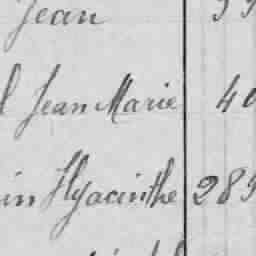 Jean
Jean Marie 40
in Hyacinthe 289